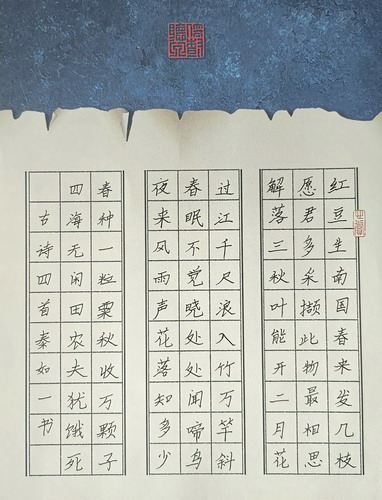 红豆生南国春来发几枝
愿君多采撷此物最相思
解落三秋叶能开二月花
过江千尺浪入竹万竿斜
春眠不觉晓处处闻啼鸟
夜来风雨声花落知多少
春种一粒粟秋收万颗子
四海无闲田农夫犹饿死
古诗四首秦如一书